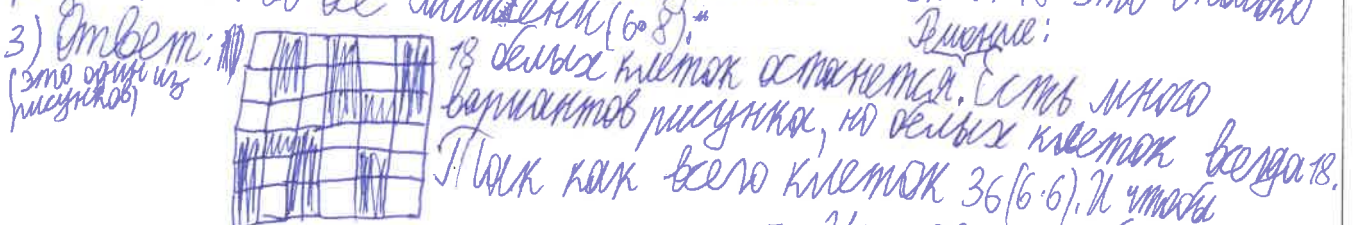 (6·8)."
3) Ответ:
(это один из
рисунков)
Решение:
18 белых клеток останется. Есть много
вариантов рисунка, но белых клеток всегда 18.
Так как всего клеток 36(6·6). И чтобы